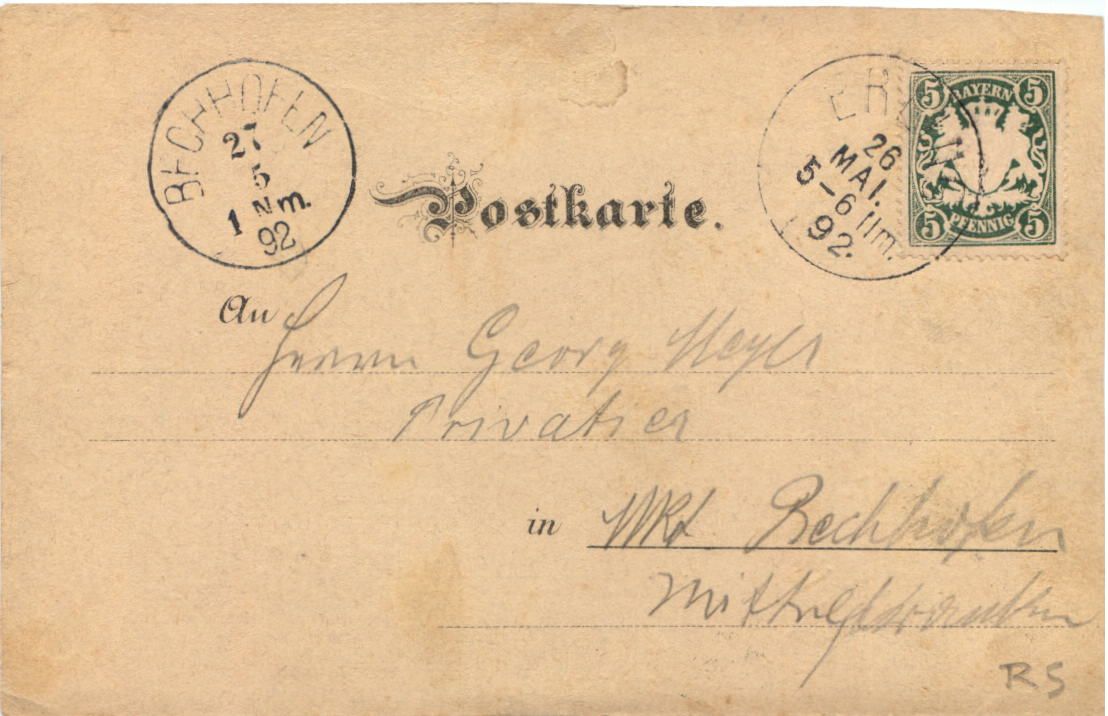 BECHHOFEN
27
5
1 Nm.
92
26
MAI.
5-6 Nm.
92.
5 BAYERN 5
5 PFENNIG 5
Postkarte.
An
Herrn Georg Meyer
Privatier
in Mkt Bechhofen
Mittelfranken
RS